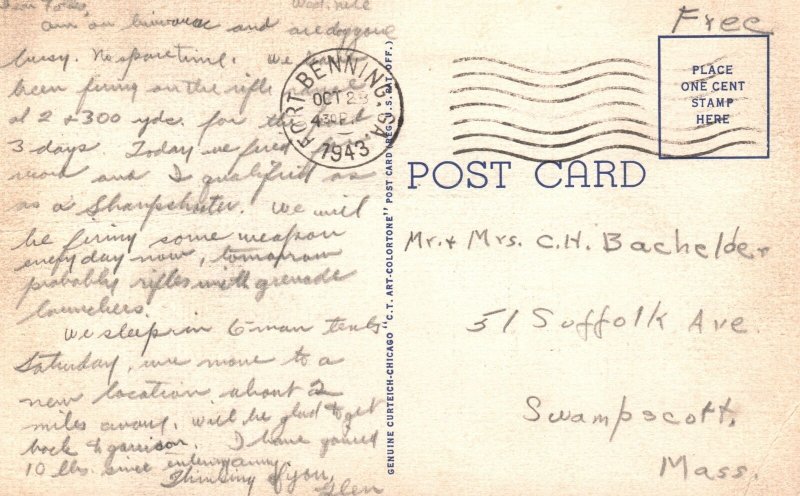 Dear Folks, Wed. nite
am on bivouac and are doggone
busy. No spare time. We have
been firing on the rifle range
at 2 + 300 yds. for the past
3 days. Today we fired
and I qualified as
as a Sharpshooter. We will
be firing some weapon
every day now, tomorrow
probably rifles with grenade
launchers.
We sleep in 6-man tents
Saturday, we move to a
new location about 2
miles away. Will be glad to get
back to garrison. I have gained
10 lbs. since entering army.
Thinking of you,
Glen
FORT BENNING, GA.
OCT 2
430 P
1943
GENUINE CURTEICH-CHICAGO "C.T. ART-COLORTONE" POST CARD (REG. U.S. PAT. OFF.)
Free
PLACE
ONE CENT
STAMP
HERE
POST CARD
Mr. + Mrs. C.H. Bachelder
51 Suffolk Ave.
Swampscott,
Mass.